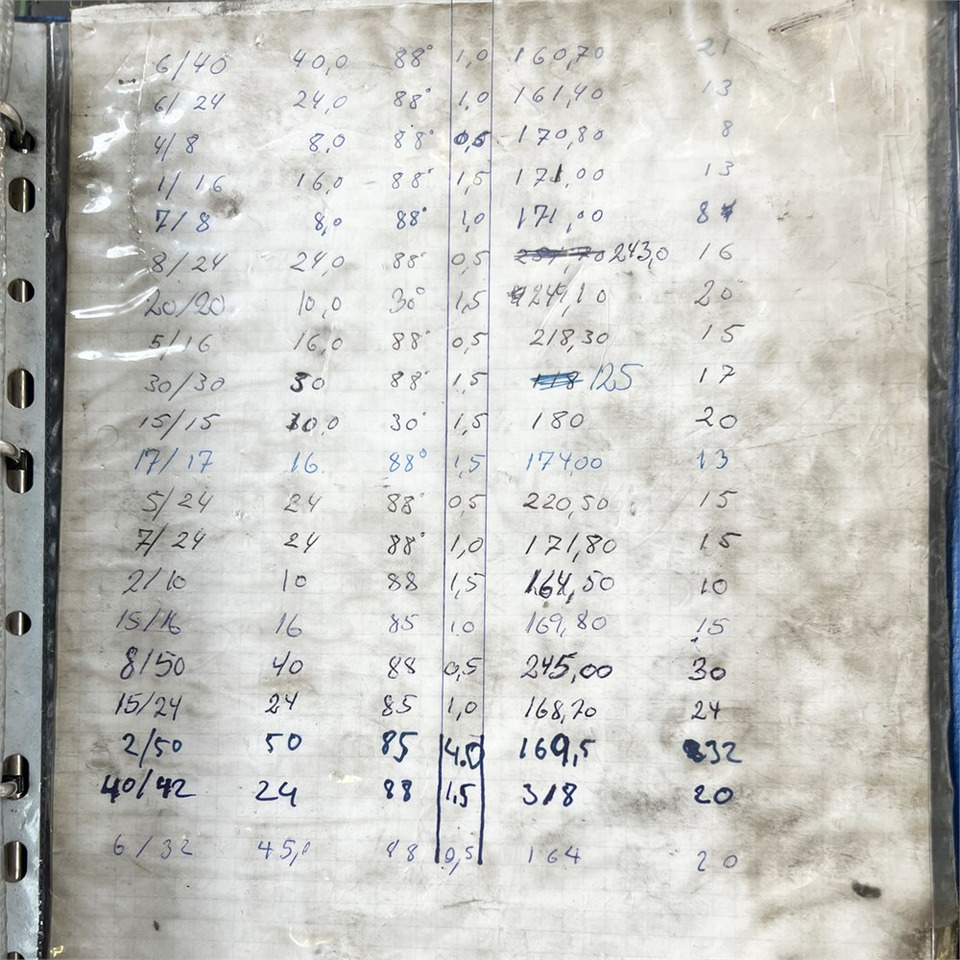 6/40 40,0 88° 1,0 160,70 21
6/24 24,0 88° 1,0 161,40 13
4/8 8,0 88° 0,5 170,80 8
1/16 16,0 88° 1,5 171,00 13
7/8 8,0 88° 1,0 171,00 8
8/24 24,0 88° 0,5 243,0 16
20/20 10,0 30° 1,5 249,10 20
5/16 16,0 88° 0,5 218,30 15
30/30 30 88° 1,5 125 17
15/15 10,0 30° 1,5 180 20
17/17 16. 88° 1,5 174,00 13
5/24 24 88° 0,5 220,50 15
7/24 24 88° 1,0 171,80 15
2/10 10 88 1,5 164,50 10
15/16 16 85 1.0 169,80 15
8/50 40 88 0,5 245,00 30
15/24 24 85 1,0 168,70 24
2/50 50 85 4.0 169,5 32
40/42 24 88 1,5 318 20
6/32 45,0 88 0,5 164 20